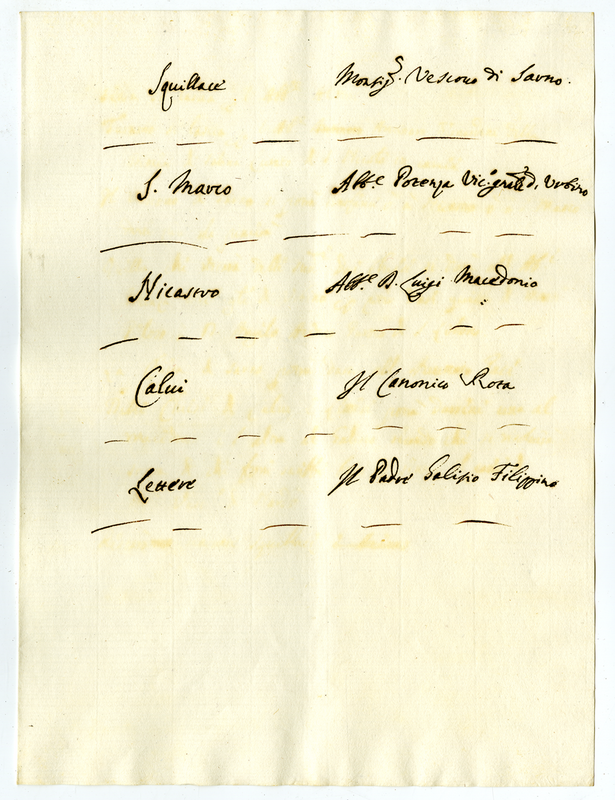 Squillace Monsig.r Vescovo di Sarno.
S. Marco Abb.e Potenza Vic.o gnãle di Urbino
Nicastro Abb.e D. Luigi Macedonio
Calui Il Canonico Rota
Lettere Il Padre Filippino